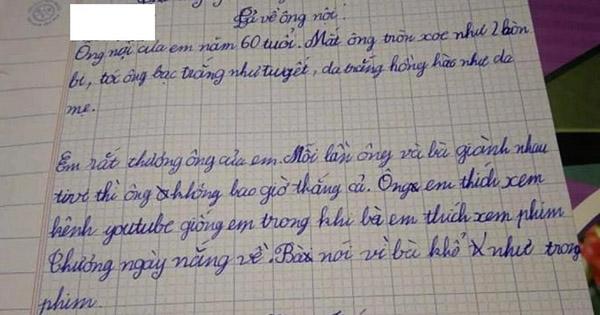 Tả về ông nội.
Ông nội của em năm 60 tuổi. Mắt ông tròn xoe như 2 hòn
bi, tóc ông bạc trắng như tuyết, da trắng hồng hào như da
mẹ.
Em rất thương ông của em. Mỗi lần ông và bà giành nhau
tivi thì ông không bao giờ thắng cả. Ông em thích xem
kênh youtube giống em trong khi bà em thích xem phim
Thương ngày nắng về. Bà nói vì bà khổ như trong
phim.